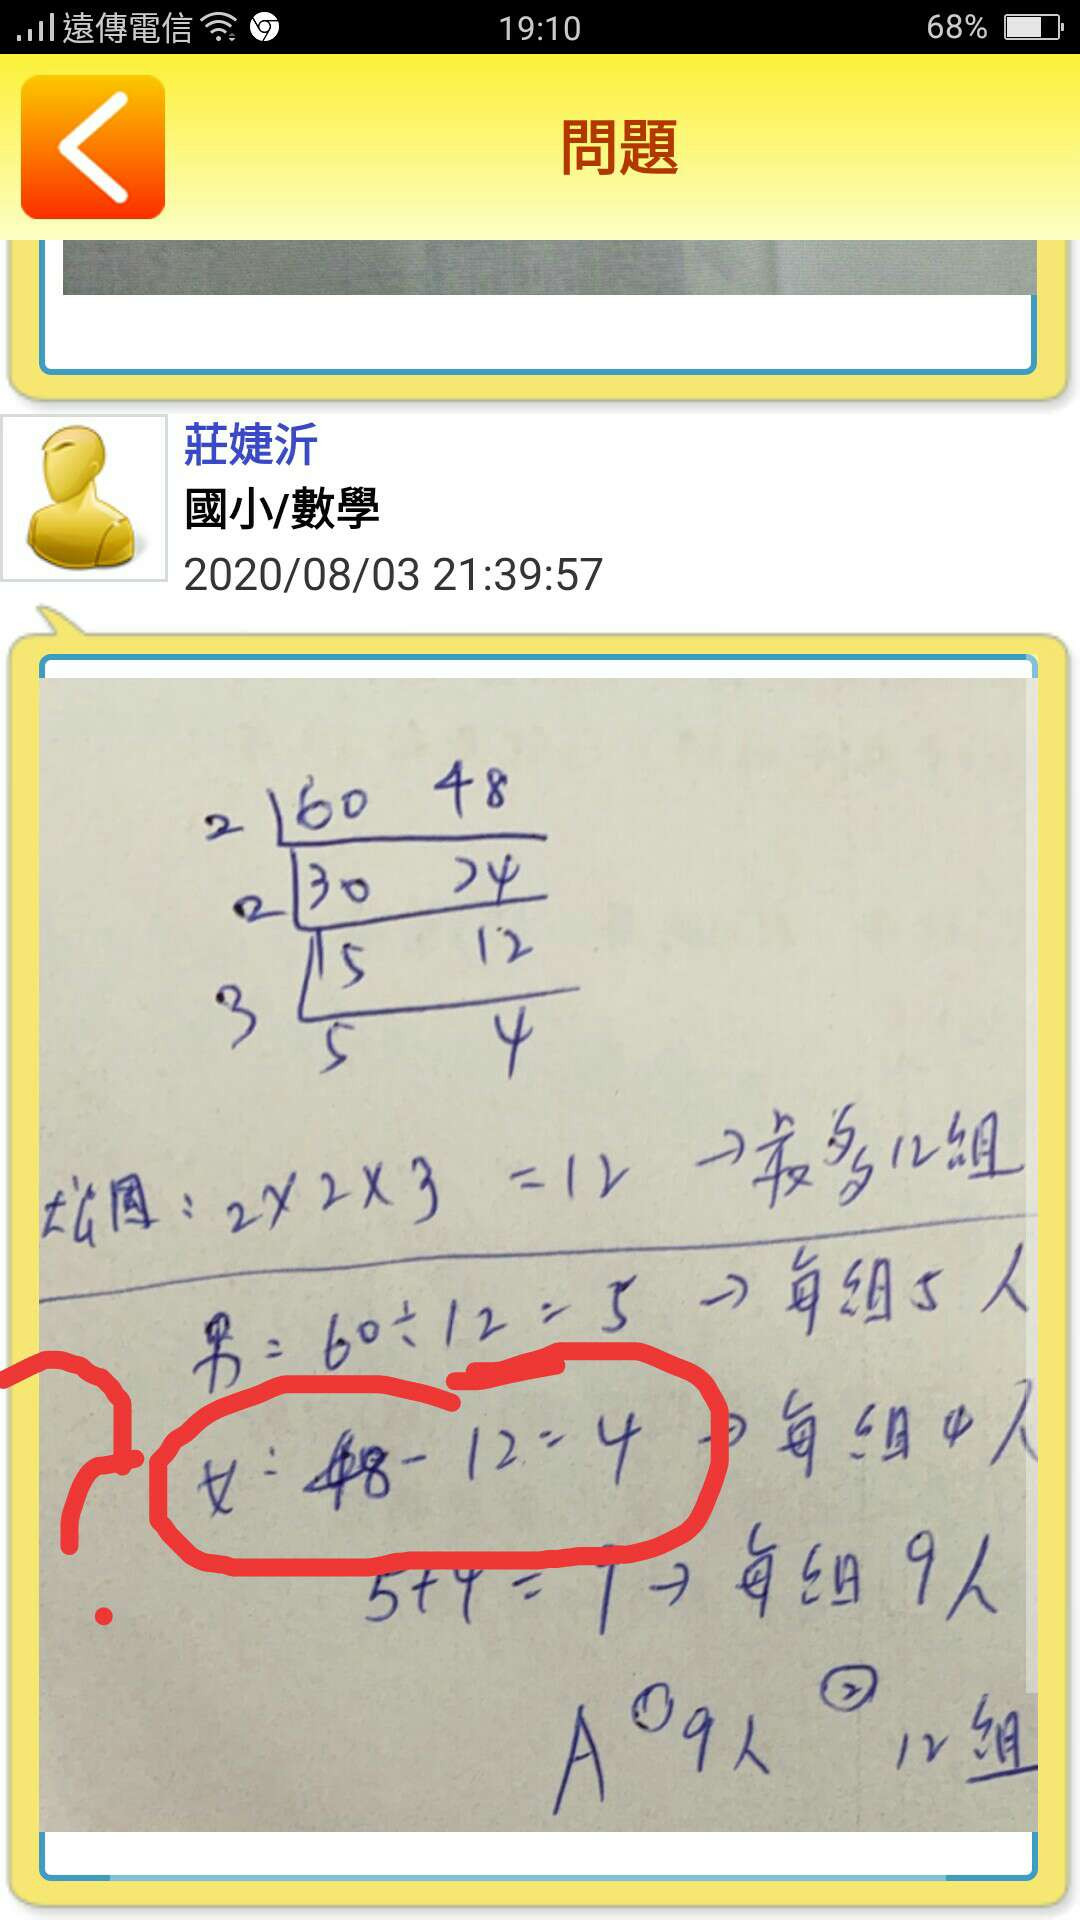 遠傳電信 19:10 68%
問題
莊婕沂
國小/數學
2020/08/03 21:39:57
2 60 48
2 30 24
3 15 12
5 4
2×2×3 =12 →最多12組
男=60÷12=5 →每組5人
女:48-12=4 →每組4人
5+4=9→每組9人
A ①9人 ②12組
?